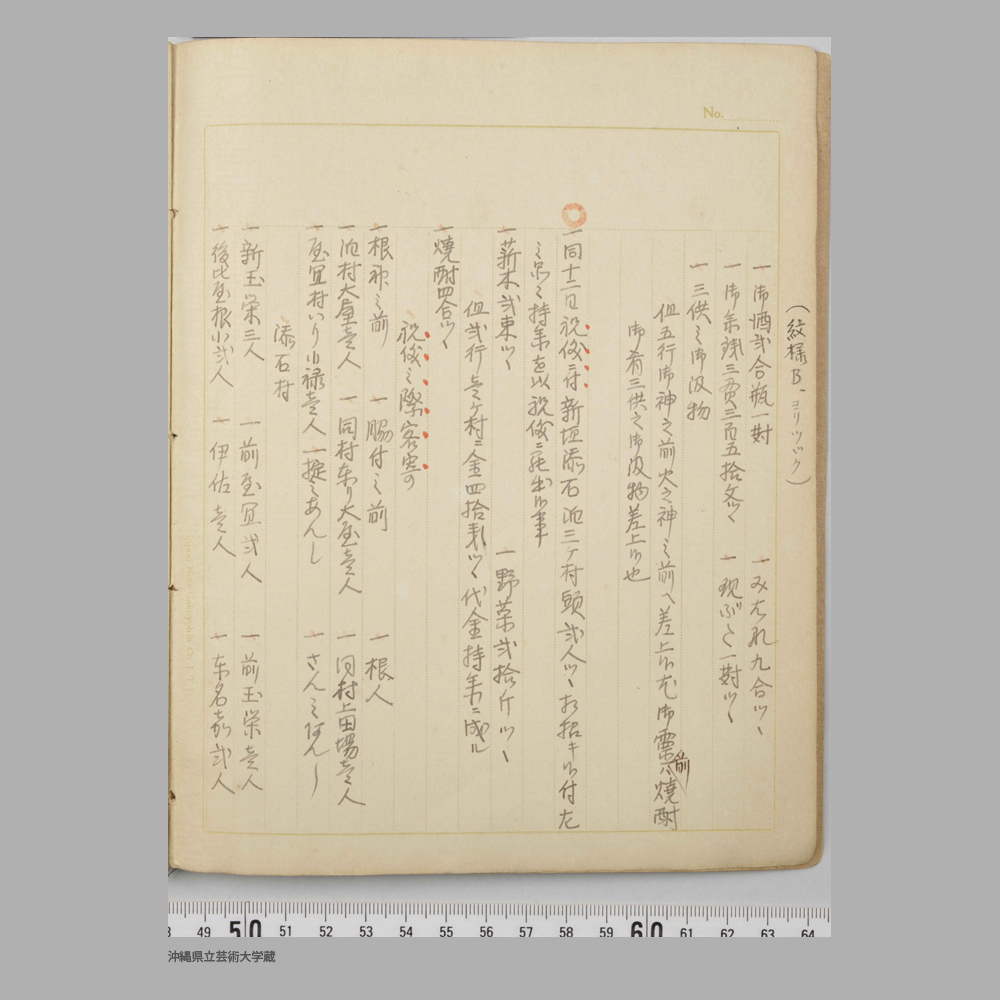 No.
(紋様B、ヨリツヅク)
一 御酒弐合瓶一対 一 みはな九合ツヽ
一 御花米銭三貫三百五拾文ツヽ 一 現ぶく一対ツヽ
一 三供之御汲物
但五行御神之前火之神之前へ差上候尤御霊前ハ焼酎
御肴三供之御汲物差上候也
一 同十二日祝儀ニ付新垣添石泊三ヶ村頭弐人ツヽお招キ候付左
之品々持参を以祝儀ニ罷出候事
一 薪木弐束ツヽ 一 野菜弐拾斤ツヽ
但弐行壱ヶ村ニ金四拾貫ツヽ代金持参ニ成ル
一 焼酎四合ツヽ
祝儀之際客衆の
一 根神之前 一 脇付之前 一 根人
一 泊村大屋壱人 一 同村東リ大屋壱人 一 同村上田場壱人
一 屋冝村いり小禄壱人 一 掟之あんし 一 さんミ阿んし
添石村
一 新玉栄三人 一 前屋冝弐人 一 前玉栄壱人
一 後比屋根小弐人 一 伊佐壱人 一 东名嘉弐人
49 50 51 52 53 54 55 56 57 58 59 60 61 62 63 64
沖縄県立芸術大学蔵